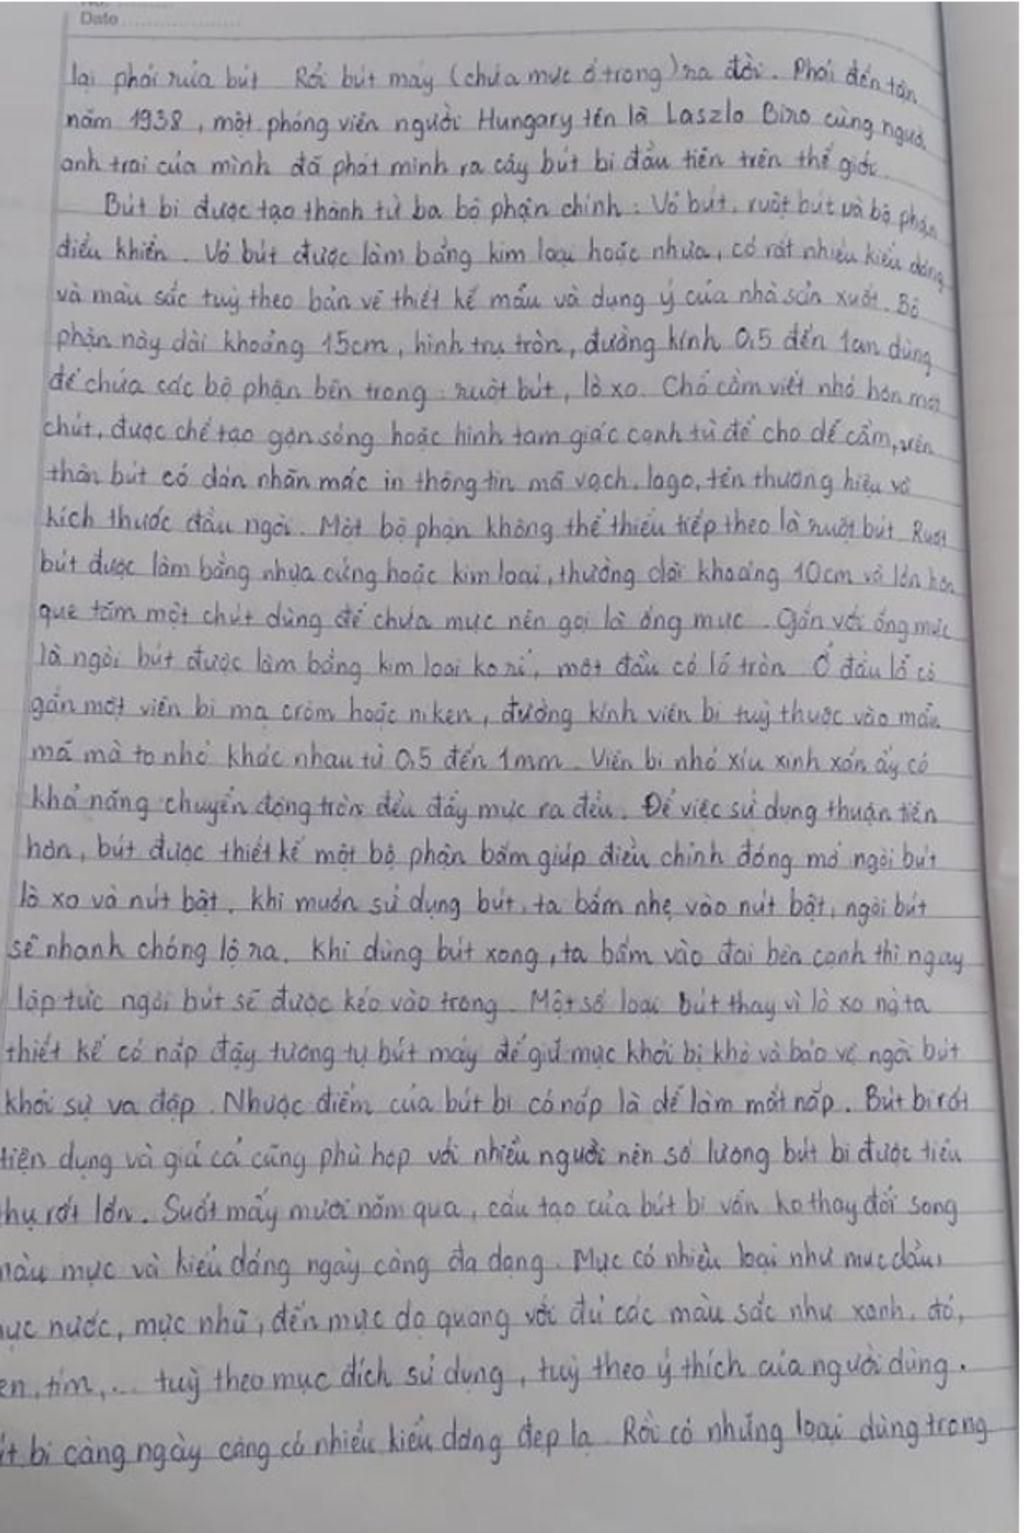 Date
lại phải rửa bút Rồi bút máy (chứa mực ở trong) ra đời. Phải đến tận
năm 1938, một phóng viên người Hungary tên là Laszlo Biro cùng người
anh trai của mình đã phát minh ra cây bút bi đầu tiên trên thế giới.
Bút bi được tạo thành từ ba bộ phận chính: Vỏ bút, ruột bút và bộ phận
điều khiển. Vỏ bút được làm bằng kim loại hoặc nhựa, có rất nhiều kiểu dáng
và màu sắc tuỳ theo bản vẽ thiết kế mẫu và dụng ý của nhà sản xuất. Bộ
phận này dài khoảng 15cm, hình trụ tròn, đường kính 0,5 đến 1cm dùng
để chứa các bộ phận bên trong: ruột bút, lò xo. Chỗ cầm viết nhỏ hơn một
chút, được chế tạo gợn sóng hoặc hình tam giác cạnh tù để cho dễ cầm, trên
thân bút có dán nhãn mác in thông tin mã vạch, logo, tên thương hiệu và
kích thước đầu ngòi. Một bộ phận không thể thiếu tiếp theo là ruột bút Ruột
bút được làm bằng nhựa cứng hoặc kim loại, thường dài khoảng 10cm và lớn hơn
que tăm một chút dùng để chứa mực nên gọi là ống mực. Gắn với ống mực
là ngòi bút được làm bằng kim loại ko rỉ, một đầu có lỗ tròn Ở đầu lỗ có
gắn một viên bi mạ crôm hoặc niken, đường kính viên bi tuỳ thuộc vào mẫu
mã mà to nhỏ khác nhau từ 0,5 đến 1mm. Viên bi nhỏ xíu xinh xắn ấy có
khả năng chuyển động tròn đều đẩy mực ra đều. Để việc sử dụng thuận tiện
hơn, bút được thiết kế một bộ phận bấm giúp điều chỉnh đóng mở ngòi bút
lò xo và nút bật. khi muốn sử dụng bút, ta bấm nhẹ vào nút bật, ngòi bút
sẽ nhanh chóng lộ ra. Khi dùng bút xong, ta bấm vào đai bên cạnh thì ngay
lập tức ngòi bút sẽ được kéo vào trong. Một số loại bút thay vì lò xo ng ta
thiết kế có nắp đậy tương tự bút máy để giữ mực khỏi bị khô và bảo vệ ngòi bút
khỏi sự va đập. Nhược điểm của bút bi có nắp là dễ làm mất nắp. Bút bi rất
tiện dụng và giá cả cũng phù hợp với nhiều người nên số lượng bút bi được tiêu
thụ rất lớn. Suốt mấy mươi năm qua, cấu tạo của bút bi vẫn ko thay đổi song
màu mực và kiểu dáng ngày càng đa dạng. Mực có nhiều loại như mực dầu,
mực nước, mực nhũ, đến mực dạ quang với đủ các màu sắc như xanh, đỏ,
en, tím,... tuỳ theo mục đích sử dụng, tuỳ theo ý thích của người dùng.
út bi càng ngày càng có nhiều kiểu dáng đẹp lạ. Rồi có những loại dùng trong